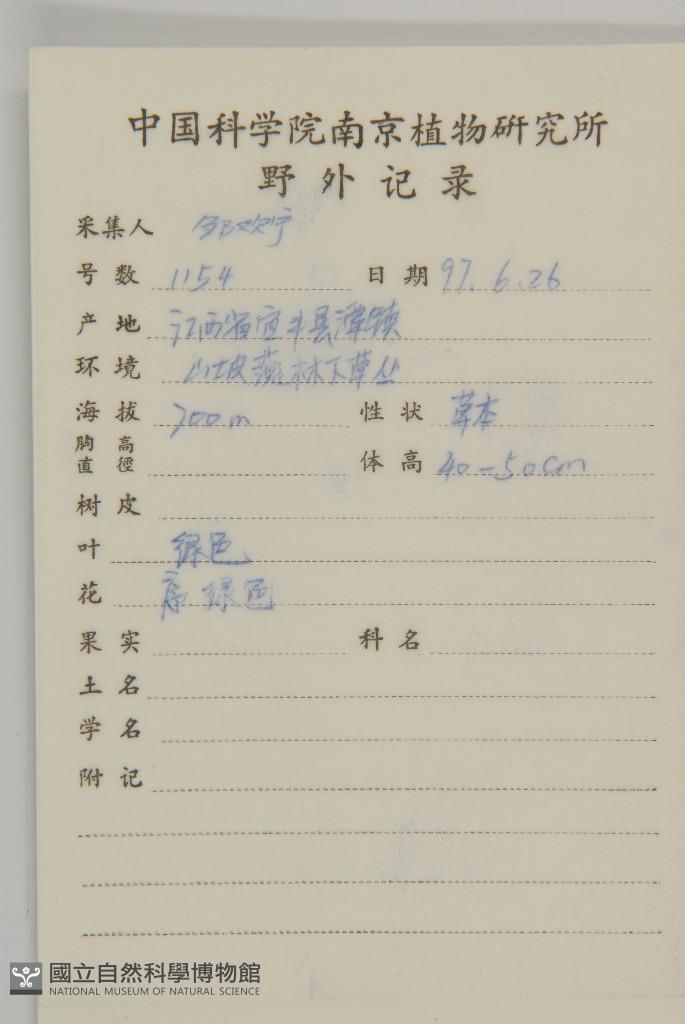 中国科学院南京植物研究所
野外记录
采集人 邹欢宁
号数 1154 日期 97.6.26
产地 江西省宜斗县潭镇
环境 山坡 林下草丛
海拔 700m 性状 草本
胸高直徑 体高 40-50cm
树皮
叶 绿色
花 序绿色
果实 科名
土名
学名
附记
國立自然科學博物館
NATIONAL MUSEUM OF NATURAL SCIENCE